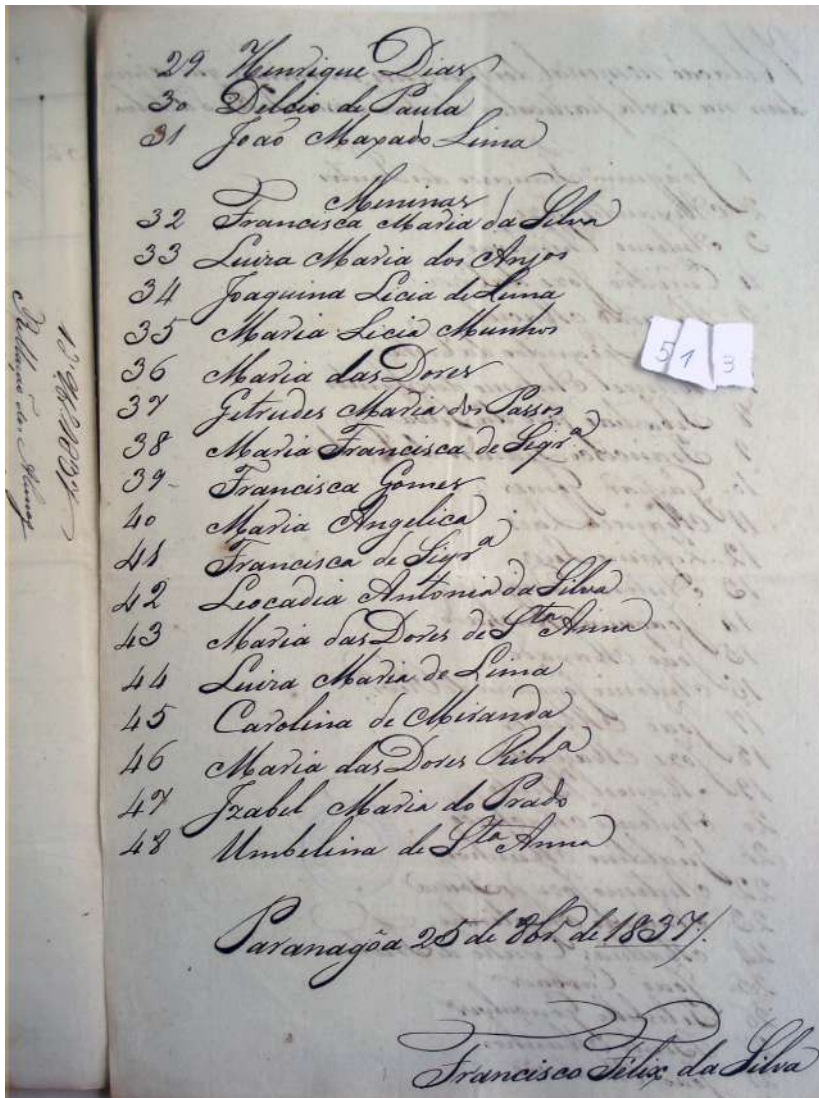 29 Henrique Dias
30 Delcio de Paula
31 João Maxado Lima
Meninas
32 Francisca Maria da Silva
33 Luiza Maria dos Anjos
34 Joaquina Licia de Lima
35 Maria Licia Munhos
36 Maria das Dores
37 Getrudes Maria dos Passos
38 Maria Francisca de Siqrª
39 Francisca Gomes
40 Maria Angelica
41 Francisca de Siqrª
42 Leocadia Antonia da Silva
43 Maria das Dores de Sta Anna
44 Luiza Maria de Lima
45 Carolina de Miranda
46 Maria das Dores Ribrª
47 Izabel Maria do Prado
48 Umbelina de Sta Anna
Paranagôa 25 de 8br. de 1837.
Francisco Felix da Silva
5 1 3